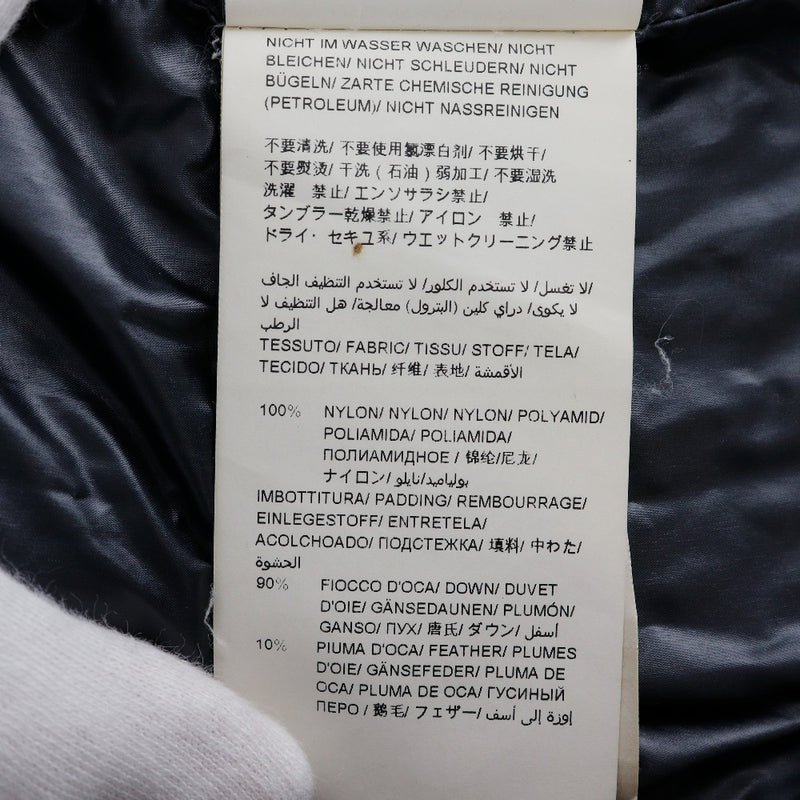 NICHT IM WASSER WASCHEN/ NICHT
BLEICHEN/ NICHT SCHLEUDERN/ NICHT
BÜGELN/ ZARTE CHEMISCHE REINIGUNG
(PETROLEUM)/ NICHT NASSREINIGEN
不要清洗/ 不要使用氯漂白剂/ 不要烘干/
不要熨烫/ 干洗 ( 石油 ) 弱加工/ 不要湿洗
洗濯 禁止/ エンソサラシ禁止/
タンブラー乾燥禁止/ アイロン 禁止/
ドライ・セキユ系/ ウエットクリーニング禁止
لا تغسل/ لا تستخدم الكلور/ لا تستخدم التنظيف الجاف/
لا يكوى/ دراي كلين (البترول) معالجة/ هل التنظيف لا
الرطب
TESSUTO/ FABRIC/ TISSU/ STOFF/ TELA/
TECIDO/ ТКАНЬ/ 纤维/ 表地/ الأقمشة
100% NYLON/ NYLON/ NYLON/ POLYAMID/
POLIAMIDA/ POLIAMIDA/
ПОЛИАМИДНОЕ / 锦纶/尼龙/
ナイロン/ بولياميد/نايلو
IMBOTTITURA/ PADDING/ REMBOURRAGE/
EINLEGESTOFF/ ENTRETELA/
ACOLCHOADO/ ПОДСТЕЖКА/ 填料/ 中わた/
الحشوة
90% FIOCCO D'OCA/ DOWN/ DUVET
D'OIE/ GÄNSEDAUNEN/ PLUMÓN/
GANSO/ ПУХ/ 唐氏/ ダウン/ أسفل
10% PIUMA D'OCA/ FEATHER/ PLUMES
D'OIE/ GÄNSEFEDER/ PLUMA DE
OCA/ PLUMA DE OCA/ ГУСИНЫЙ
ПЕРО / 鹅毛/ フェザー/ إوزة إلى أسف